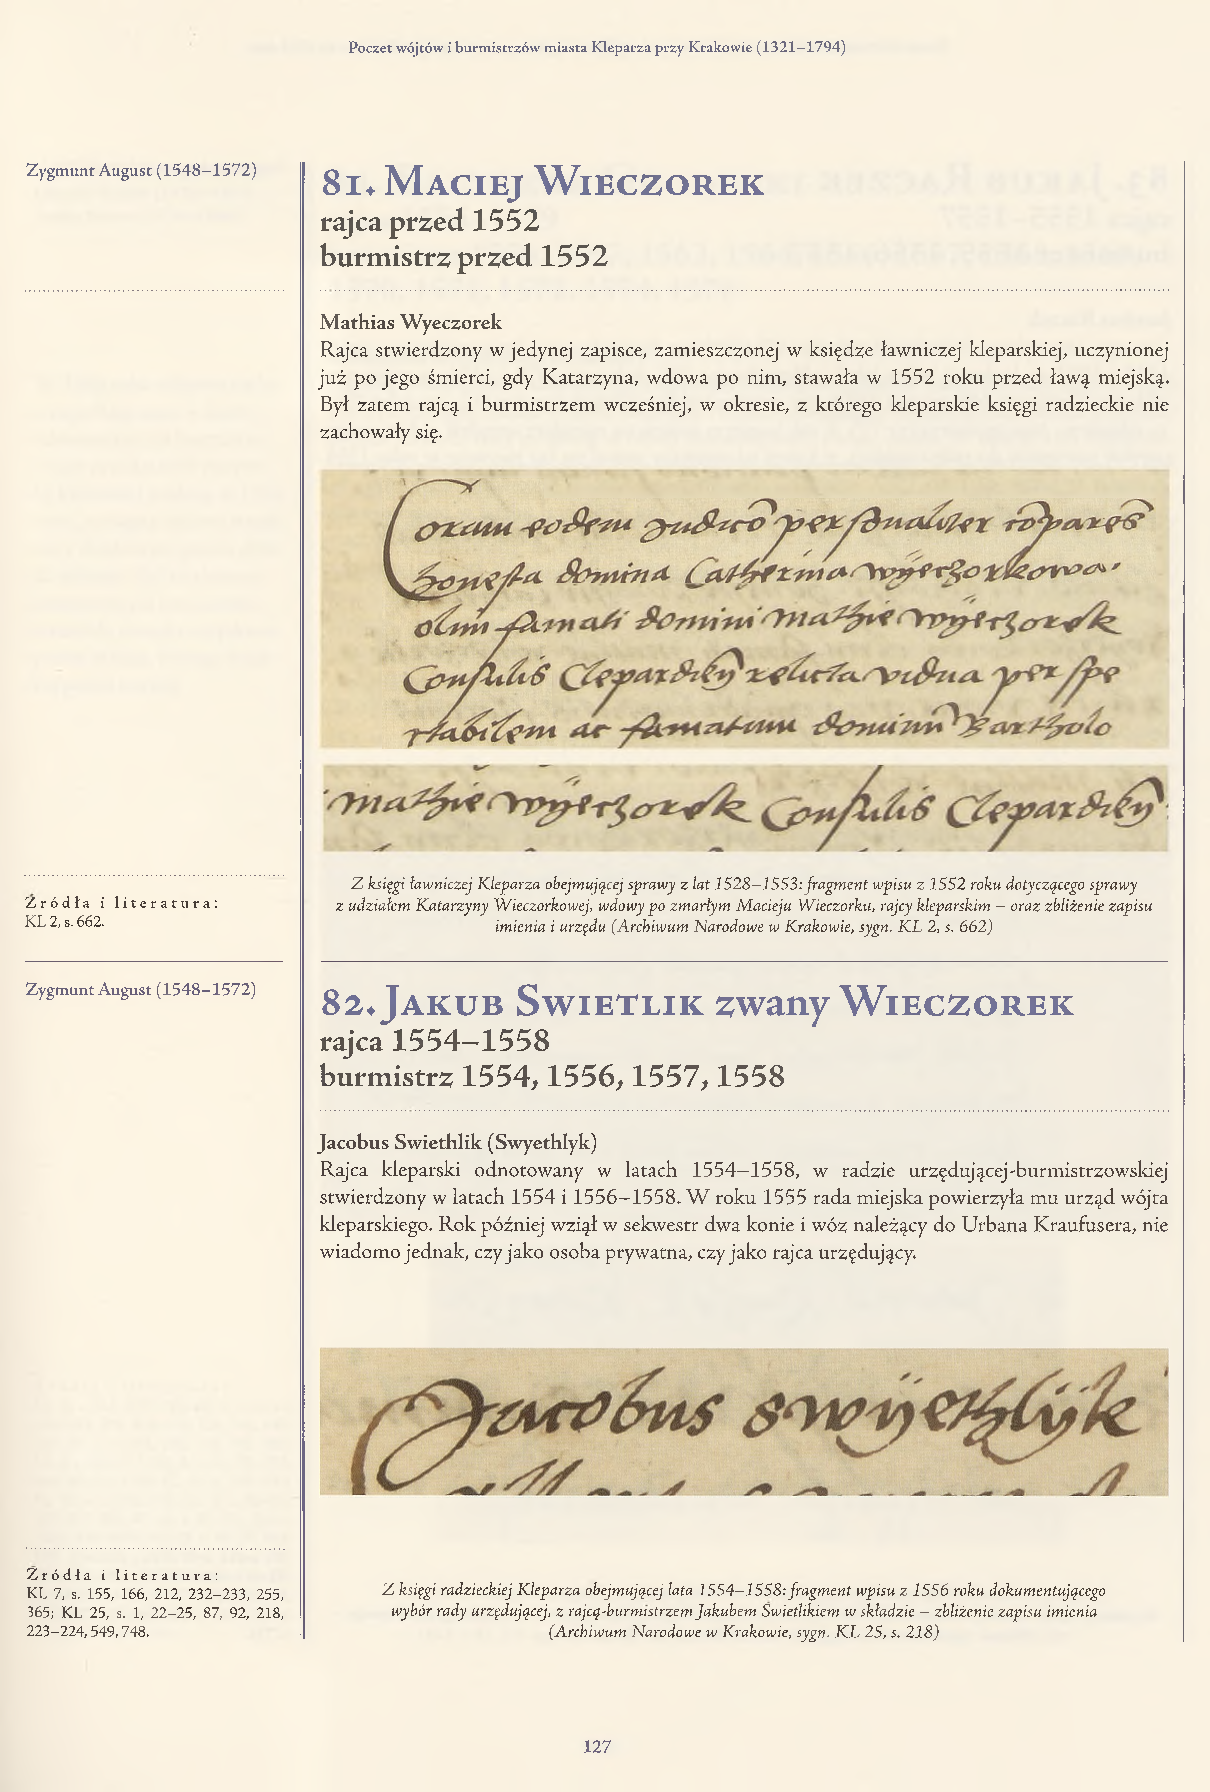 Poczet wójtów i burmistrzów miasta Kleparza przy Krakowie (1321–1794)
Zygmunt August (1548–1572)
81. Maciej Wieczorek
rajca przed 1552
burmistrz przed 1552
Mathias Wyeczorek
Rajca stwierdzony w jedynej zapisce, zamieszczonej w księdze ławniczej kleparskiej, uczynionej
już po jego śmierci, gdy Katarzyna, wdowa po nim, stawała w 1552 roku przed ławą miejską.
Był zatem rajcą i burmistrzem wcześniej, w okresie, z którego kleparskie księgi radzieckie nie
zachowały się.
Coram eodem Judicō personaliter cōparēs
honesta domina Catherina wÿeczorkowa
olim famati domini mathie wÿeczorek
Consulis Clepardień relicta vidua per spe
ctabilem ac famatum dominū Bartholo
mathie wÿeczorek Consulis Clepardień
Z księgi ławniczej Kleparza obejmującej sprawy z lat 1528–1553: fragment wpisu z 1552 roku dotyczącego sprawy
z udziałem Katarzyny Wieczorkowej, wdowy po zmarłym Macieju Wieczorku, rajcy kleparskim – oraz zbliżenie zapisu
imienia i urzędu (Archiwum Narodowe w Krakowie, sygn. KL 2, s. 662)
Źródła i literatura:
KL 2, s. 662.
Zygmunt August (1548–1572)
82. Jakub Swietlik zwany Wieczorek
rajca 1554–1558
burmistrz 1554, 1556, 1557, 1558
Jacobus Swiethlik (Swyethlyk)
Rajca kleparski odnotowany w latach 1554–1558, w radzie urzędującej-burmistrzowskiej
stwierdzony w latach 1554 i 1556–1558. W roku 1555 rada miejska powierzyła mu urząd wójta
kleparskiego. Rok później wziął w sekwestr dwa konie i wóz należący do Urbana Kraufusera, nie
wiadomo jednak, czy jako osoba prywatna, czy jako rajca urzędujący.
Jacobus swÿethlÿk
Z księgi radzieckiej Kleparza obejmującej lata 1554–1558: fragment wpisu z 1556 roku dokumentującego
wybór rady urzędującej, z rajcą-burmistrzem Jakubem Świetlikiem w składzie – zbliżenie zapisu imienia
(Archiwum Narodowe w Krakowie, sygn. KL 25, s. 218)
Źródła i literatura:
KL 7, s. 155, 166, 212, 232–233, 255,
365; KL 25, s. 1, 22–25, 87, 92, 218,
223–224, 549, 748.
127